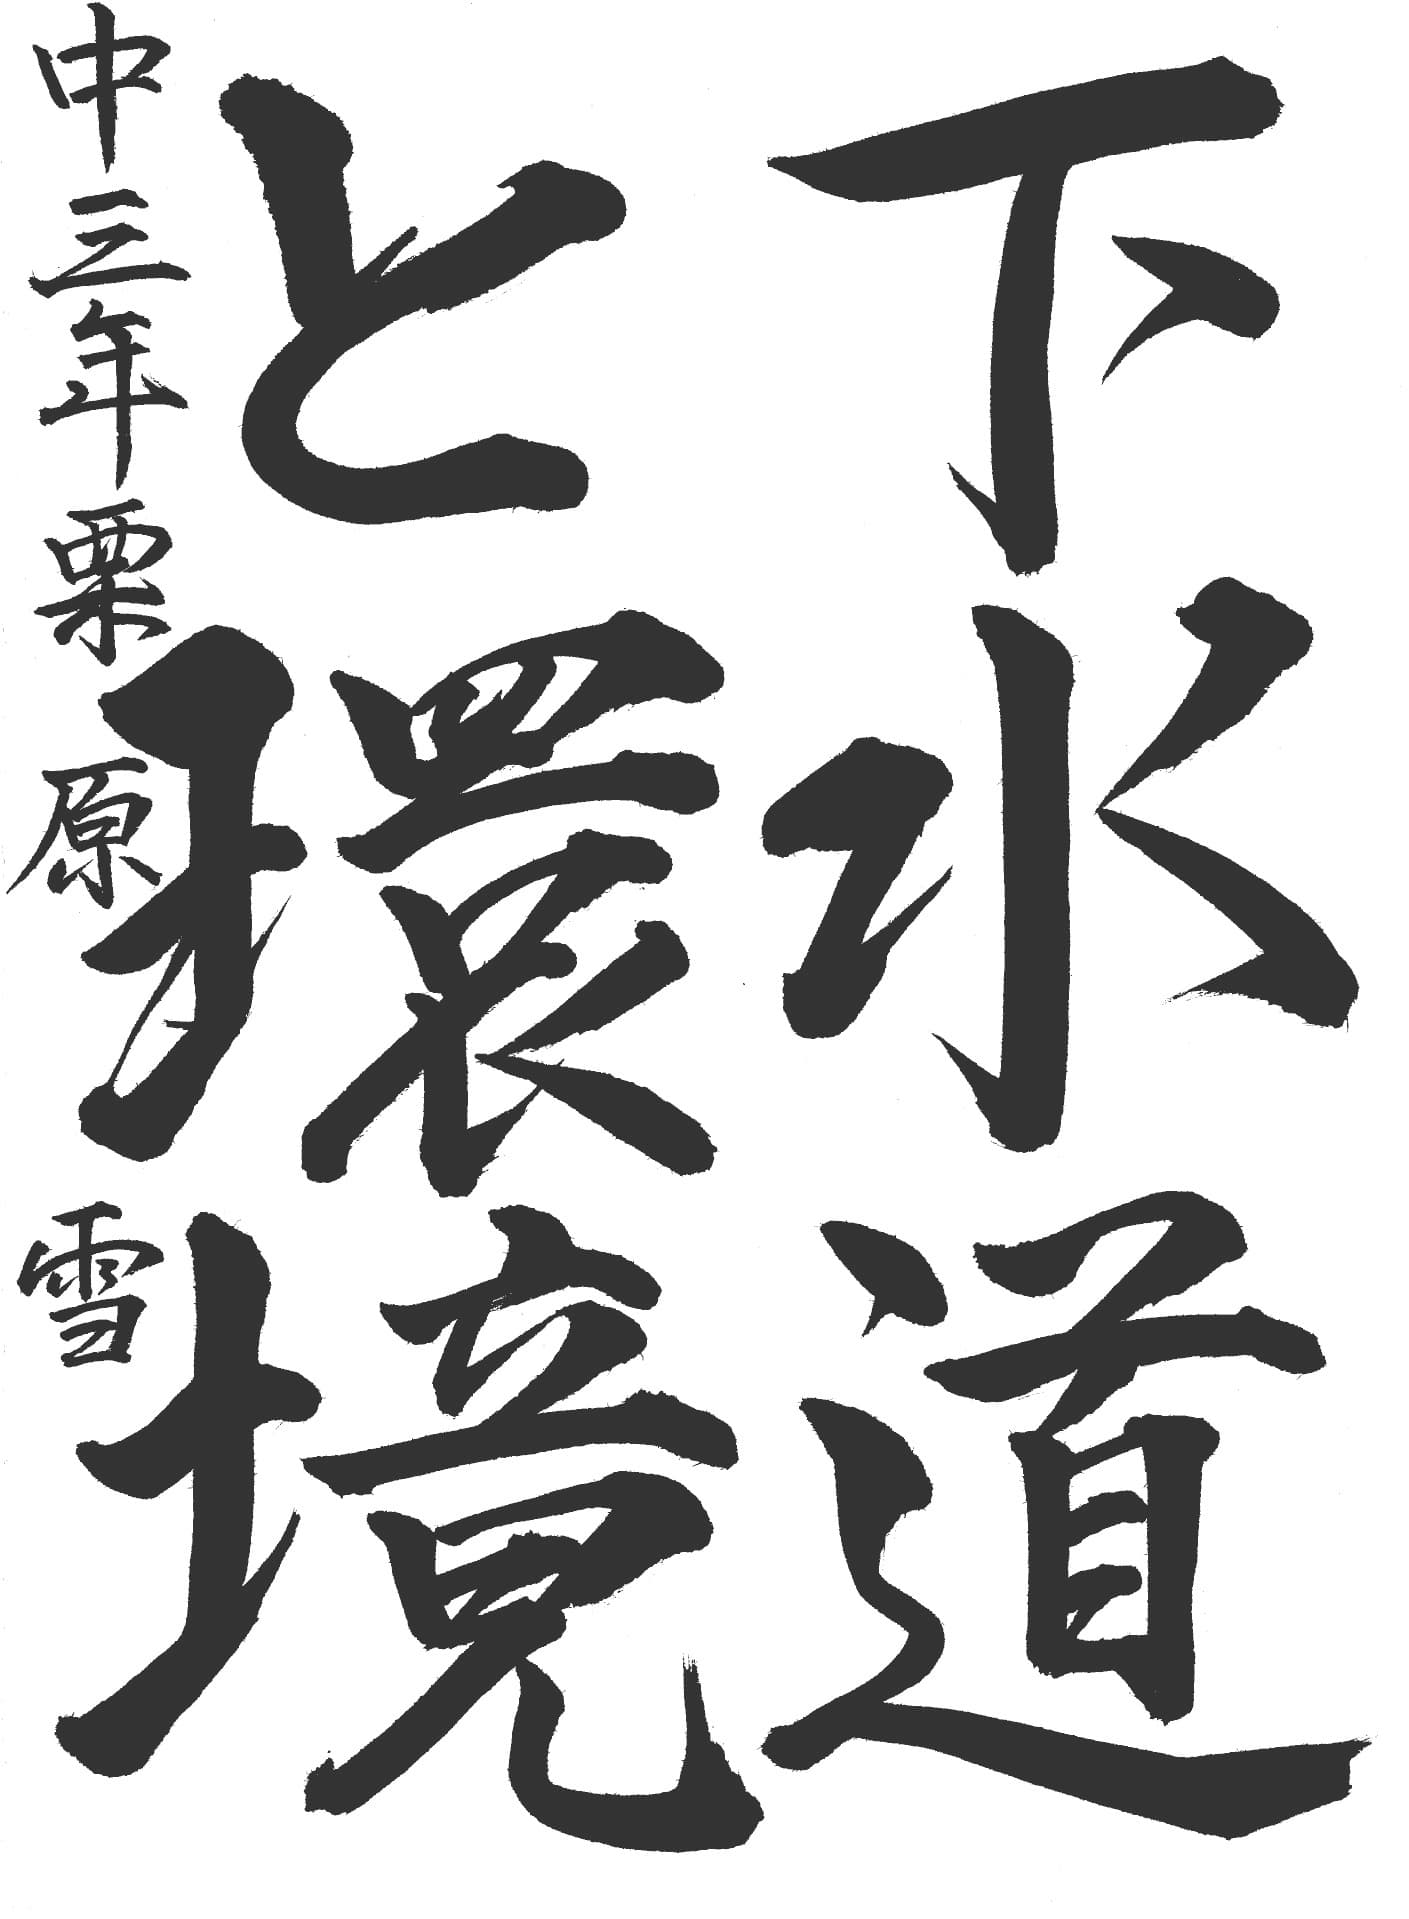 下水道
と環境
中三年 栗原 雪